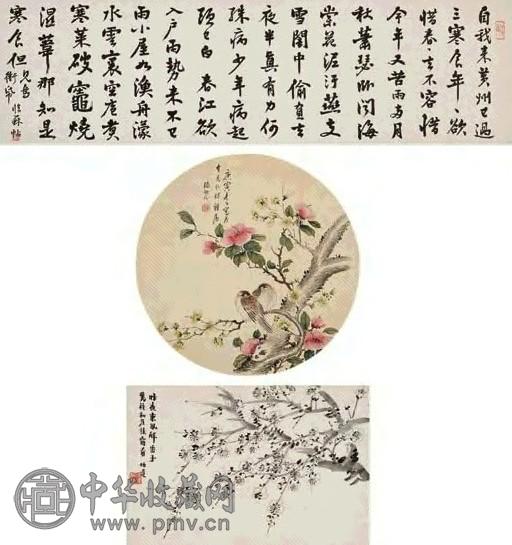 自我来黄州已過
三寒食年〻欲
惜春〻去不容惜
今年又苦雨两月
秋蕭瑟卧聞海
棠花泥汙燕支
雪闇中偷負去
夜半真有力何
殊病少年病起
頭已白春江欲
入户雨勢未不已
雨小屋如漁舟濛
水雲裏空庖煮
寒菜破竈燒
濕葦那知是
寒食但見烏
銜紙 临蘇帖
庚寅
昨夜東風
中华收藏网
www.pmv.cn